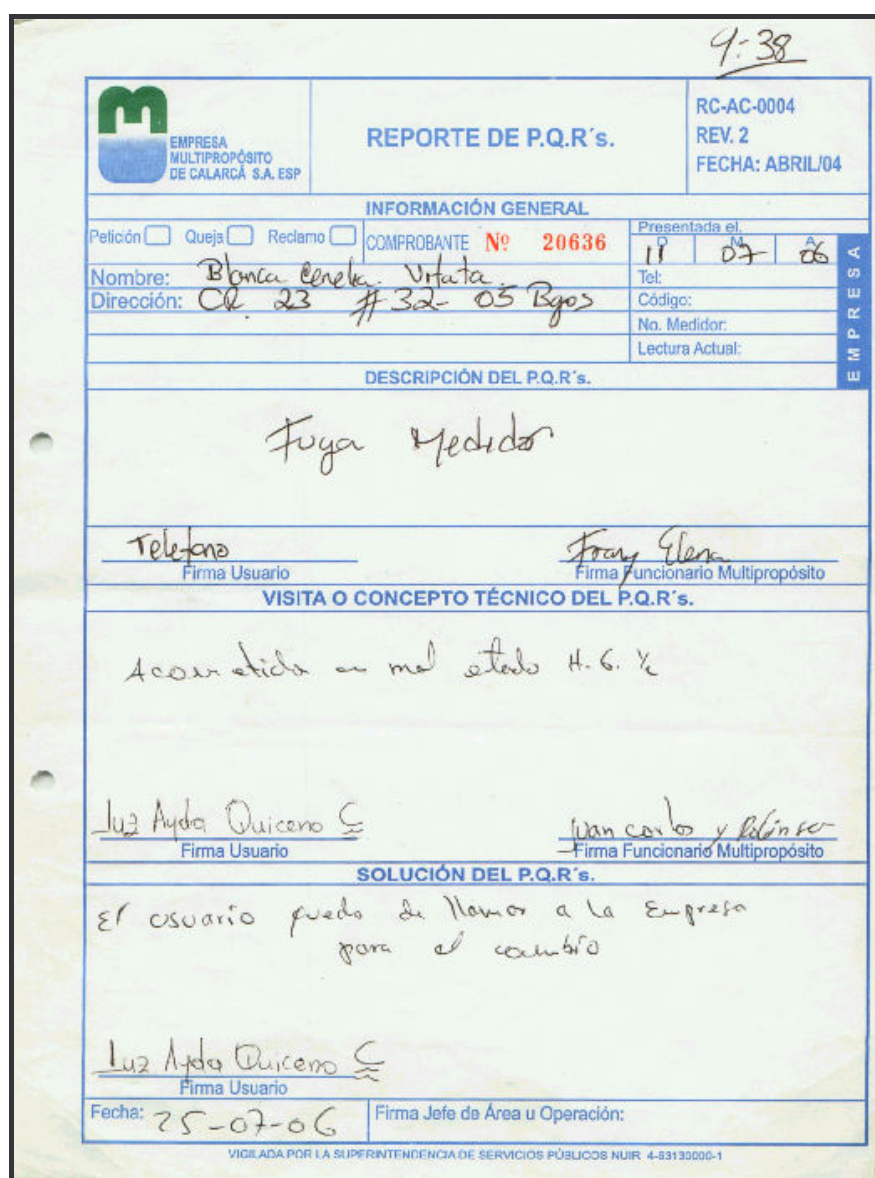 9:38
EMPRESA
MULTIPROPÓSITO
DE CALARCÁ S.A. ESP
REPORTE DE P.Q.R´s.
RC-AC-0004
REV. 2
FECHA: ABRIL/04
INFORMACIÓN GENERAL
Petición Queja Reclamo COMPROBANTE Nº 20636
Presentada el.
D M A
11 07 06
Nombre: Blanca
Tel:
Dirección: CR 23 # 32-05 Bgos
Código:
No. Medidor:
Lectura Actual:
EMPRESA
DESCRIPCIÓN DEL P.Q.R´s.
Fuga Medidor
Telefono Elena
Firma Usuario Firma Funcionario Multipropósito
VISITA O CONCEPTO TÉCNICO DEL P.Q.R´s.
Acometida en mal estado H.G. ½
Luz Ayda Quiceno C Juan carlos y
Firma Usuario Firma Funcionario Multipropósito
SOLUCIÓN DEL P.Q.R´s.
El usuario quedo de llamar a la Empresa
para el cambio
Luz Ayda Quiceno C
Firma Usuario
Fecha: 25-07-06 Firma Jefe de Área u Operación:
VIGILADA POR LA SUPERINTENDENCIA DE SERVICIOS PÚBLICOS NUIR 4-63130000-1